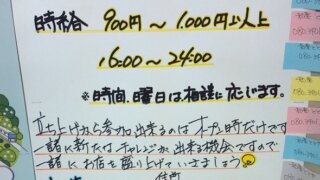 時給 900円〜1.000円以上
16:00〜24:00
※時間、曜日は相談に応じます。
立ち上げから参加出来るのはオープン時だけです
一緒に新たなチャレンジが出来る機会ですので
一緒にお店を盛り上げていきましょう
住所